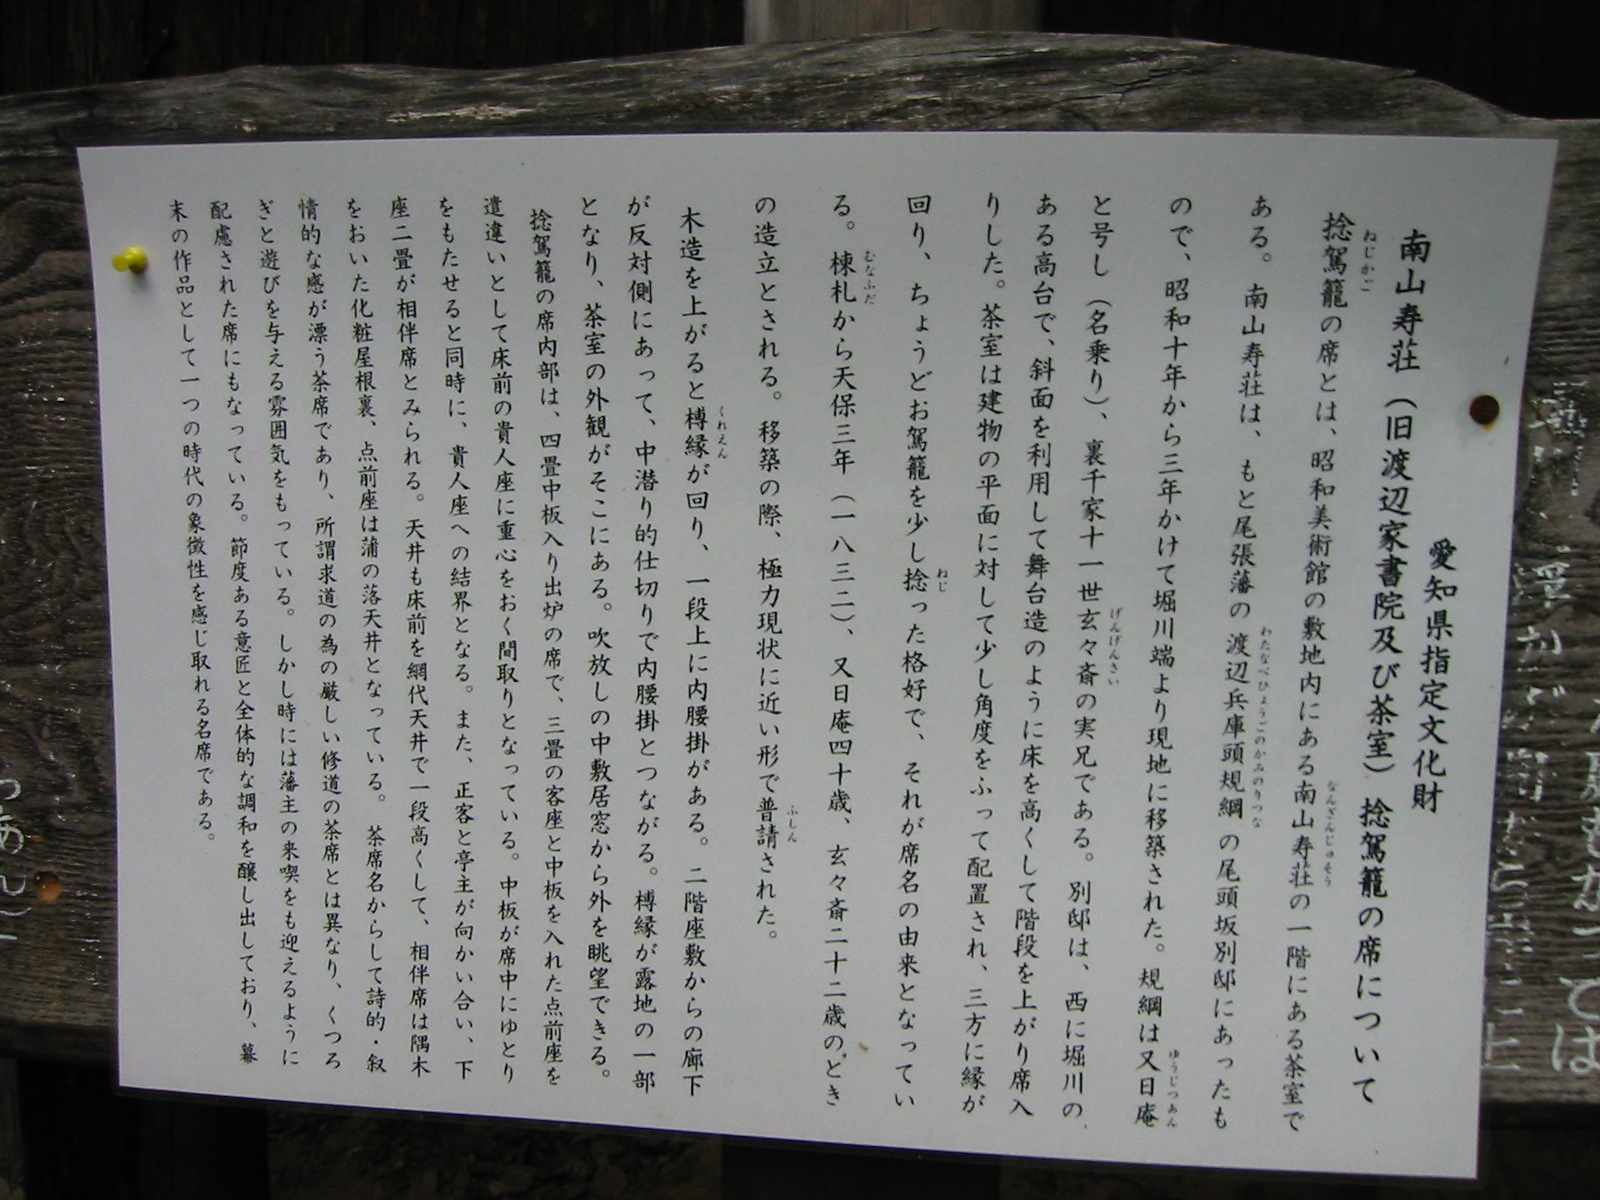 愛知県指定文化財
南山寿荘（旧渡辺家書院及び茶室）捻駕籠の席について
捻駕籠の席とは、昭和美術館の敷地内にある南山寿荘の一階にある茶室で
ある。南山寿荘は、もと尾張藩の渡辺兵庫頭規綱の尾頭坂別邸にあったも
ので、昭和十年から三年かけて堀川端より現地に移築された。規綱は又日庵
と号し（名乗り）、裏千家十一世玄々斎の実兄である。別邸は、西に堀川の
ある高台で、斜面を利用して舞台造のように床を高くして階段を上がり席入
りした。茶室は建物の平面に対して少し角度をふって配置され、三方に縁が
回り、ちょうどお駕籠を少し捻った格好で、それが席名の由来となってい
る。棟札から天保三年（一八三二）、又日庵四十歳、玄々斎二十二歳のどき
の造立とされる。移築の際、極力現状に近い形で普請された。
木造を上がると榑縁が回り、一段上に内腰掛がある。二階座敷からの廊下
が反対側にあって、中潜り的仕切りで内腰掛とつながる。榑縁が露地の一部
となり、茶室の外観がそこにある。吹放しの中敷居窓から外を眺望できる。
捻駕籠の席内部は、四畳中板入り出炉の席で、三畳の客座と中板を入れた点前座を
遣違いとして床前の貴人座に重心をおく間取りとなっている。中板が席中にゆとり
をもたせると同時に、貴人座への結界となる。また、正客と亭主が向かい合い、下
座二畳が相伴席とみられる。天井も床前を網代天井で一段高くして、相伴席は隅木
をおいた化粧屋根裏、点前座は蒲の落天井となっている。茶席名からして詩的・叙
情的な感が漂う茶席であり、所謂求道の為の厳しい修道の茶席とは異なり、くつろ
ぎと遊びを与える雰囲気をもっている。しかし時には藩主の来喫をも迎えるように
配慮された席にもなっている。節度ある意匠と全体的な調和を醸し出しており、幕
末の作品として一つの時代の象徴性を感じ取れる名席である。